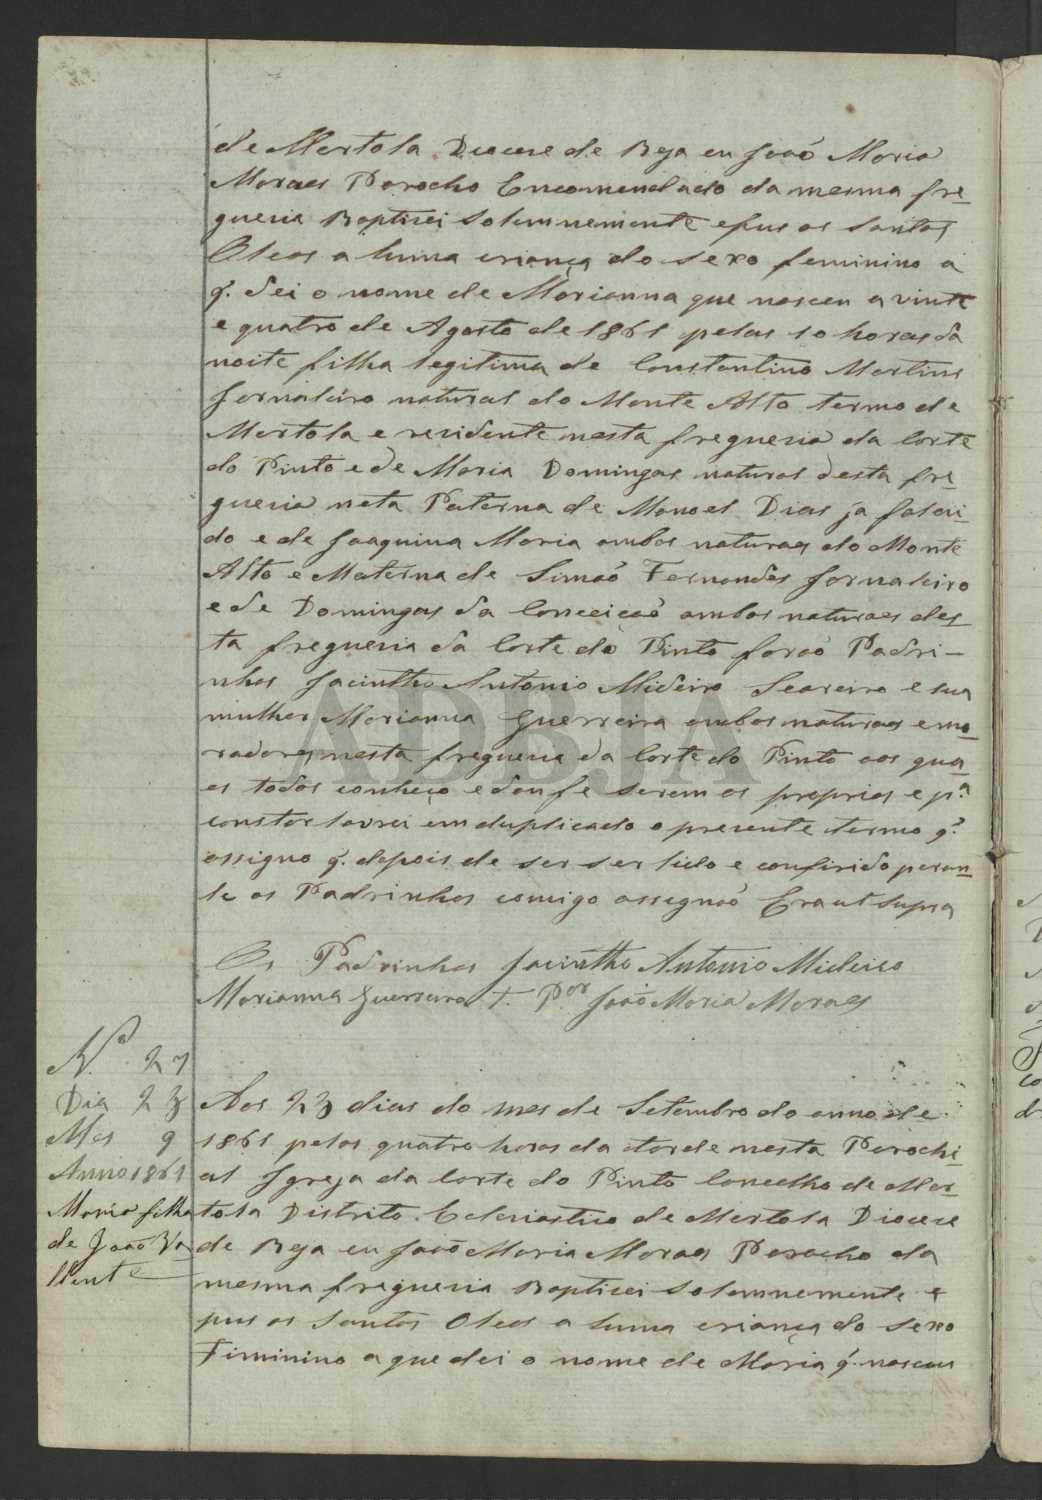 de Mertola Diocese de Beja eu João Maria
Moraes Parocho Encomendado da mesma fre-
guesia Baptisei Solemnemente e pus os santos
Oleos a huma criança do sexo feminino a
q. dei o nome de Marianna que nasceu a vinte
e quatro de Agosto de 1861 pelas 10 horas da
noite filha legitima de Constantino Martins
Jornaleiro natural do Monte Alto termo de
Mertola e residente nesta freguesia da Corte
do Pinto e de Maria Domingas natural desta fre-
guesia neta Paterna de Manoel Dias ja faleci-
do e de Joaquina Maria ambos naturaes do Monte
Alto e Materna de Simaõ Fernandes Jornaleiro
e de Domingas da Conceicaõ ambos naturaes des-
ta freguesia da Corte do Pinto foraõ Padri-
nhos Jacintho Antonio Mideiro Seareiro e sua
mulher Marianna Guerreira ambos naturaes e mo-
radores nesta freguesia da Corte do Pinto aos qua-
es todos conheço e dou fe serem os proprios e p.ª
constar lavrei em duplicado o presente termo q.
assigno q. depois de ser ser lido e conferido peran-
te os Padrinhos comigo assignaõ Era ut supra
Os Padrinhos Jacintho Antonio Mideiro
Marianna Guerreira +. P.or João Maria Moraes
N.º 27
Dia 23
Mes 9
Anno 1861
Maria filha
de João Va-
llente
Aos 23 dias do mes de Setembro do anno de
1861 pelas quatro horas da tarde nesta Parochi-
al Igreja da Corte do Pinto Concelho de Mer-
tola Distrito Eclesiastico de Mertola Diocese
de Beja eu João Maria Moraes Parocho da
mesma freguesia Baptisei Solemnemente e
pus os Santos Oleos a huma criança do sexo
Fiminino a que dei o nome de Maria q. nasceu
ADBJA